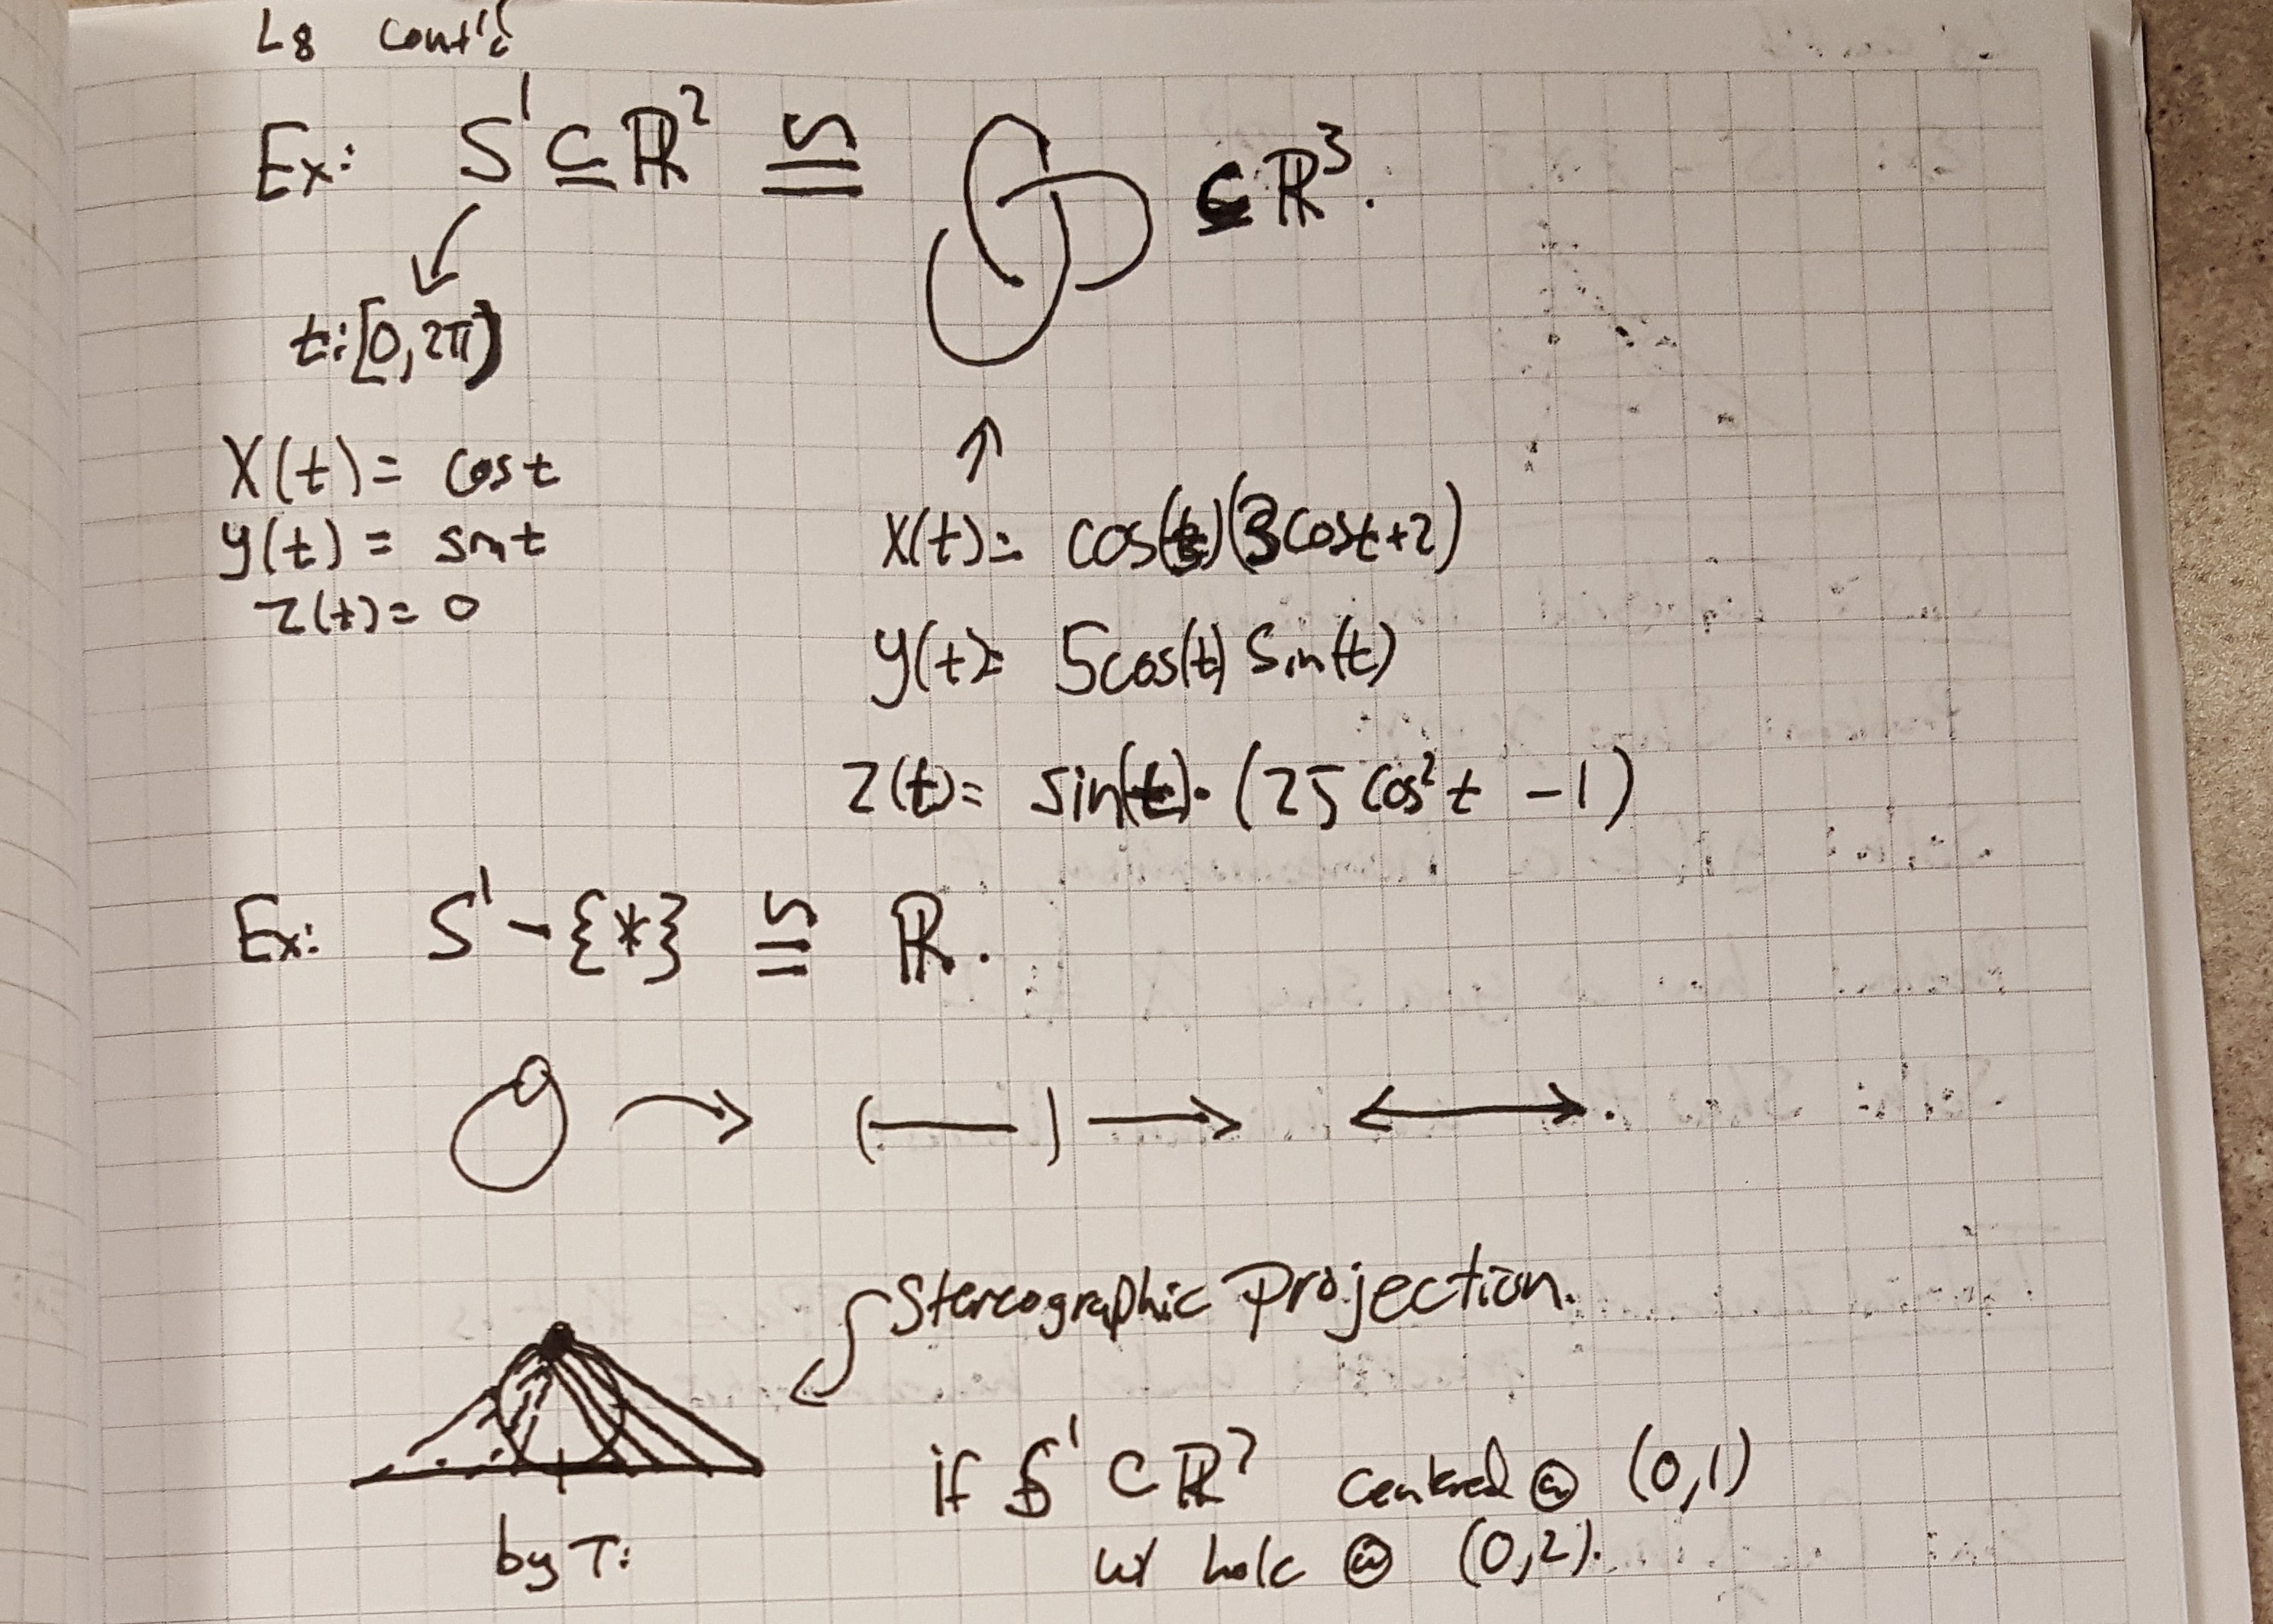 L8 cont'd
Ex: S¹ ⊆ ℝ² ≅ ⊆ ℝ³.
t:[0,2π)
x(t)= cos t
y(t) = sin t
z(t)= 0
x(t)= cos(t)(3cost+2)
y(t)= 5cos(t) sin(t)
z(t)= sin(t)·(25 cos²t -1)
Ex: S¹-{*} ≅ ℝ.
(—) → ↔.
Stereographic Projection.
if S¹ ⊂ ℝ² centred @ (0,1)
by T: w/ hole @ (0,2).